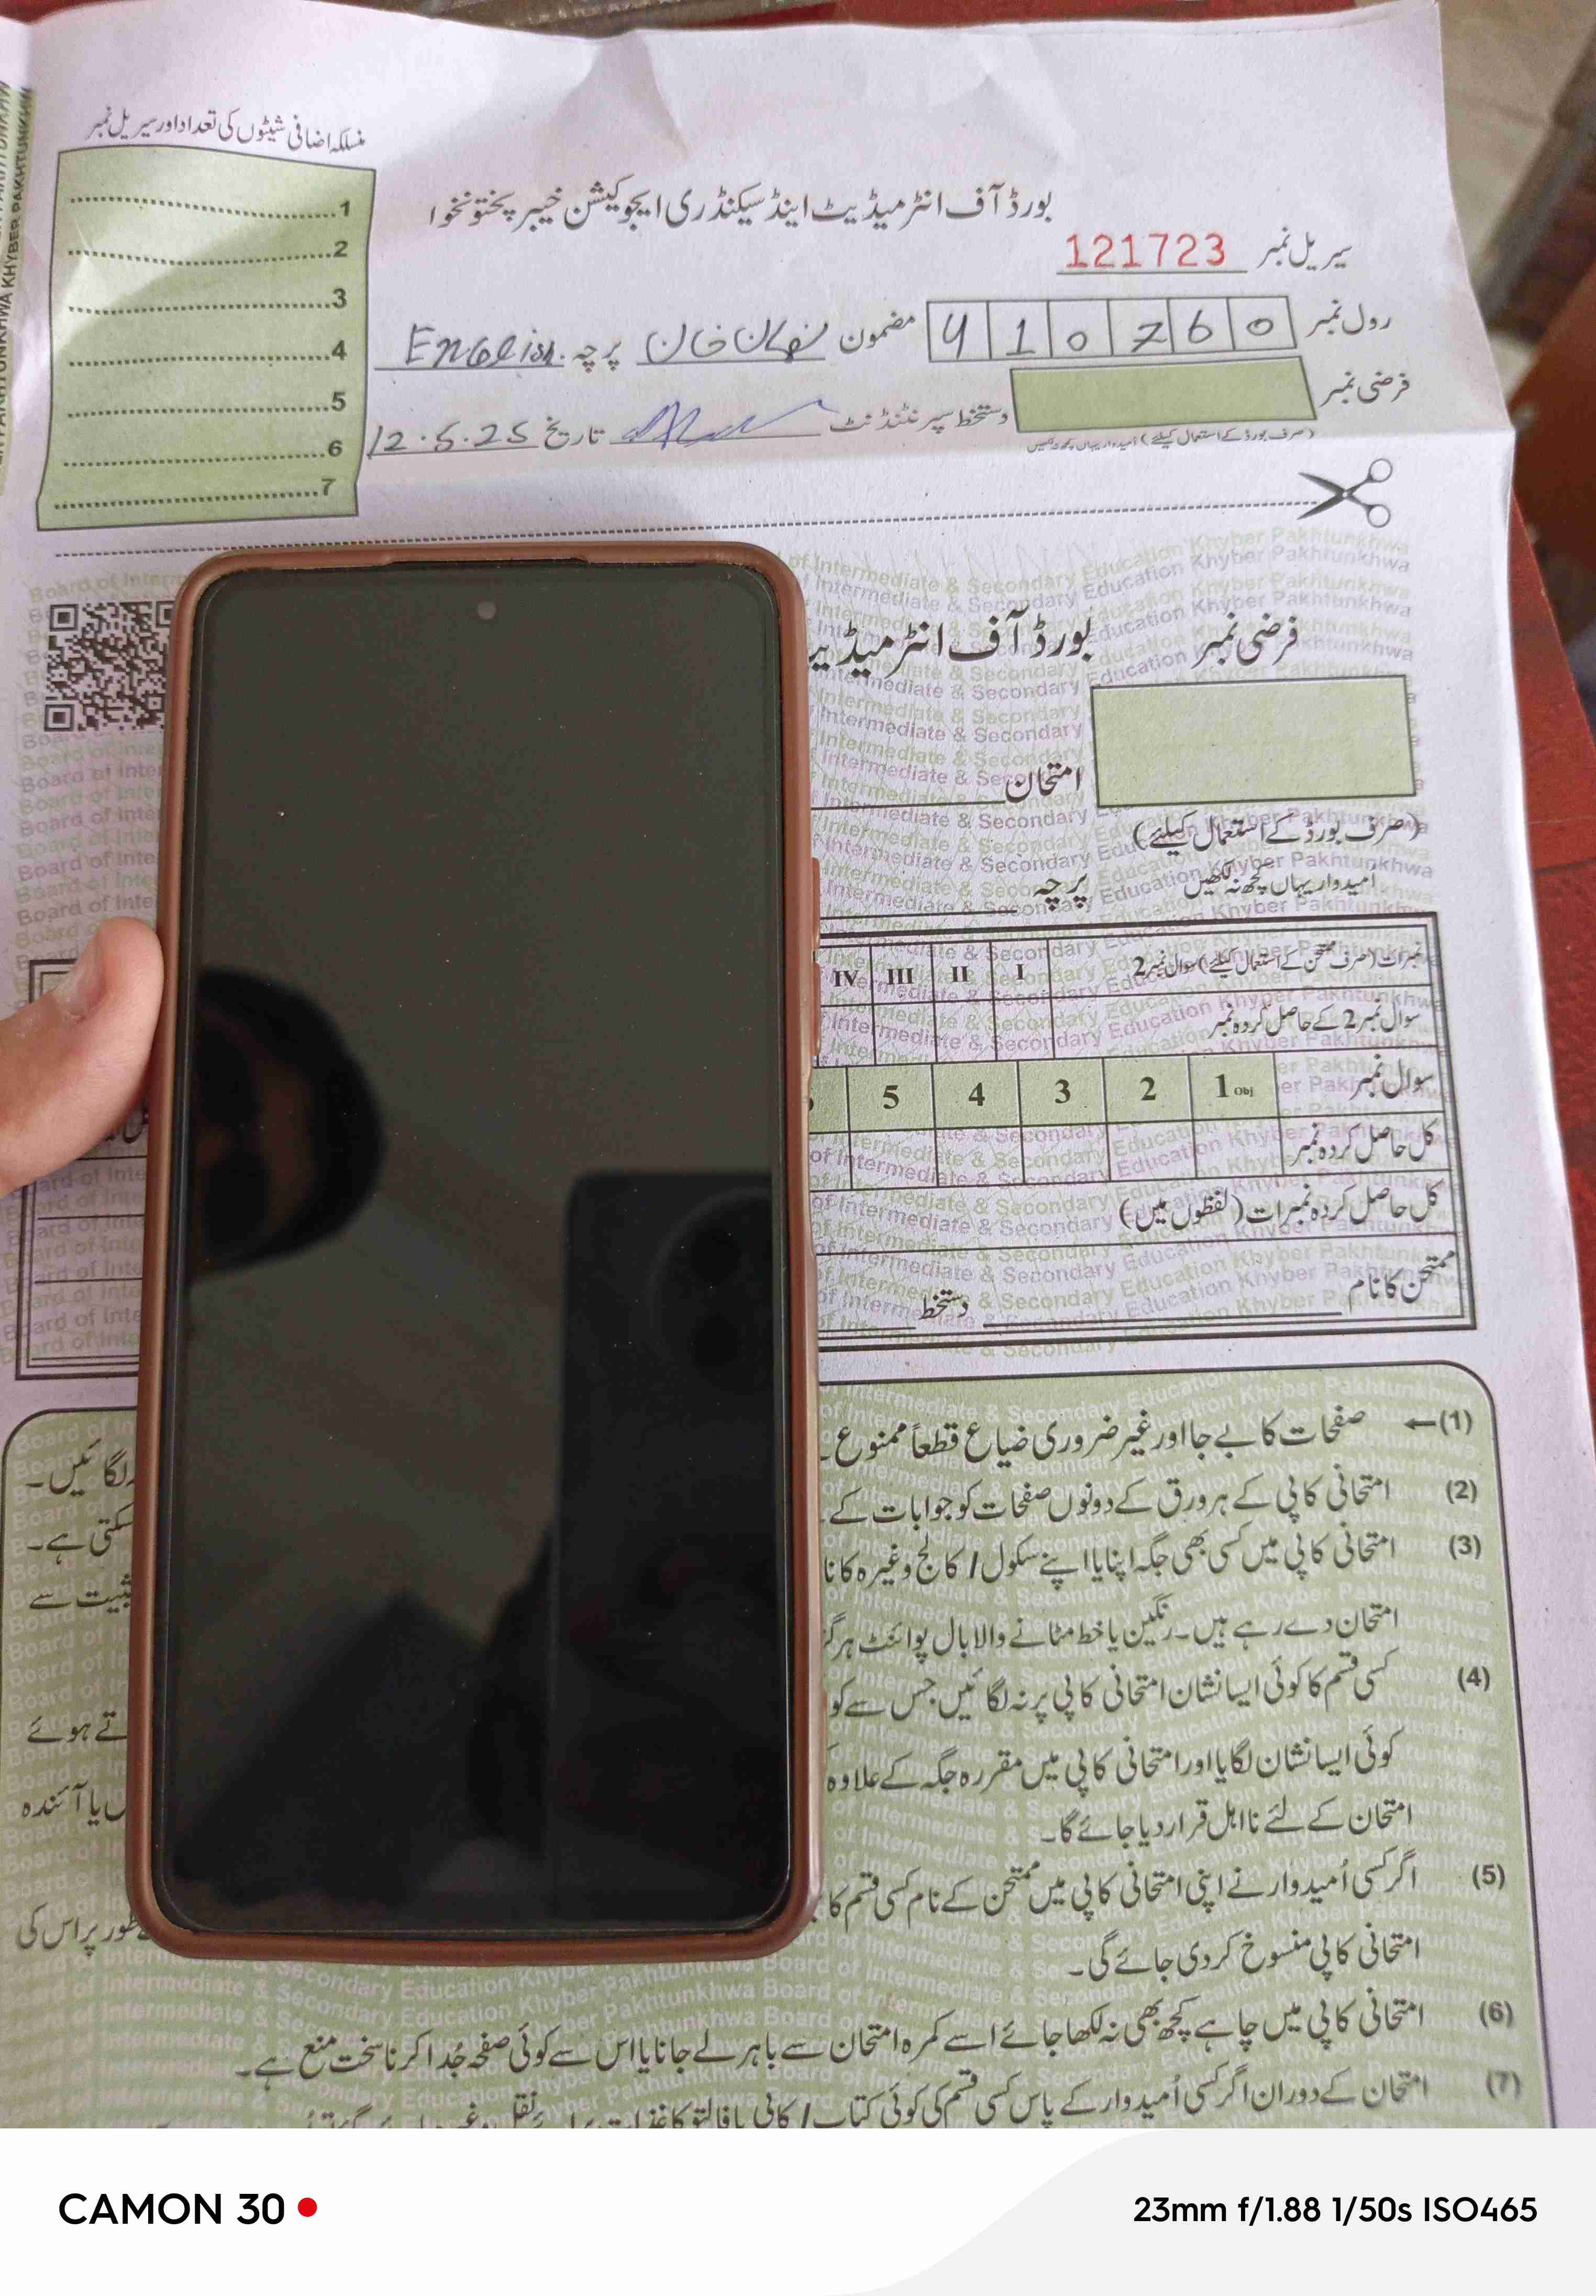 منسلکہ اضافی شیٹوں کی تعداد اور سیریل نمبر
1
2
3
4
5
6
7
بورڈ آف انٹرمیڈیٹ اینڈ سیکنڈری ایجوکیشن خیبر پختونخوا
سیریل نمبر 121723
رول نمبر 410760 مضمون خان پرچہ English
فرضی نمبر
دستخط سپرنٹنڈنٹ تاریخ 12.5.25
(صرف بورڈ کے استعمال کیلئے) امیدوار یہاں کچھ نہ لکھیں
فرضی نمبر بورڈ آف انٹرمیڈی
امتحان
(صرف بورڈ کے استعمال کیلئے)
امیدوار یہاں کچھ نہ لکھیں پرچہ
نمبرات (صرف ممتحن کے استعمال کیلئے) سوال نمبر 2 I II III IV
سوال نمبر 2 کے حاصل کردہ نمبر
سوال نمبر 1 Obj 2 3 4 5
کل حاصل کردہ نمبر
کل حاصل کردہ نمبرات (لفظوں میں)
ممتحن کا نام دستخط
(1)← صفحات کا بے جا اور غیر ضروری ضیاع قطعاً ممنوع
لگائیں۔
(2) امتحانی کاپی کے ہر ورق کے دونوں صفحات کو جوابات کے
سکتی ہے۔
(3) امتحانی کاپی میں کسی بھی جگہ اپنا یا اپنے سکول / کالج وغیرہ کا نا
امتحان دے رہے ہیں۔ رنگین یا خط مٹانے والا بال پوائنٹ ہر
(4) کسی قسم کا کوئی ایسا نشان امتحانی کاپی پر نہ لگائیں جس سے کو
تے ہوئے
کوئی ایسا نشان لگایا اور امتحانی کاپی میں مقررہ جگہ کے علاوہ
یا آئندہ
امتحان کے لئے نااہل قرار دیا جائے گا۔
(5) اگر کسی اُمیدوار نے اپنی امتحانی کاپی میں ممتحن کے نام کسی قسم کا
طور پر اس کی
امتحانی کاپی منسوخ کر دی جائے گی۔
(6) امتحانی کاپی میں چاہے کچھ بھی نہ لکھا جائے اسے کمرہ امتحان سے باہر لے جانا یا اس سے کوئی صفحہ جُدا کرنا سخت منع ہے۔
(7) امتحان کے دوران اگر کسی اُمیدوار کے پاس کسی قسم کی کوئی کتاب / کاپی یا فالتو کاغذات
Board of Intermediate & Secondary Education Khyber Pakhtunkhwa
CAMON 30
23mm f/1.88 1/50s ISO465